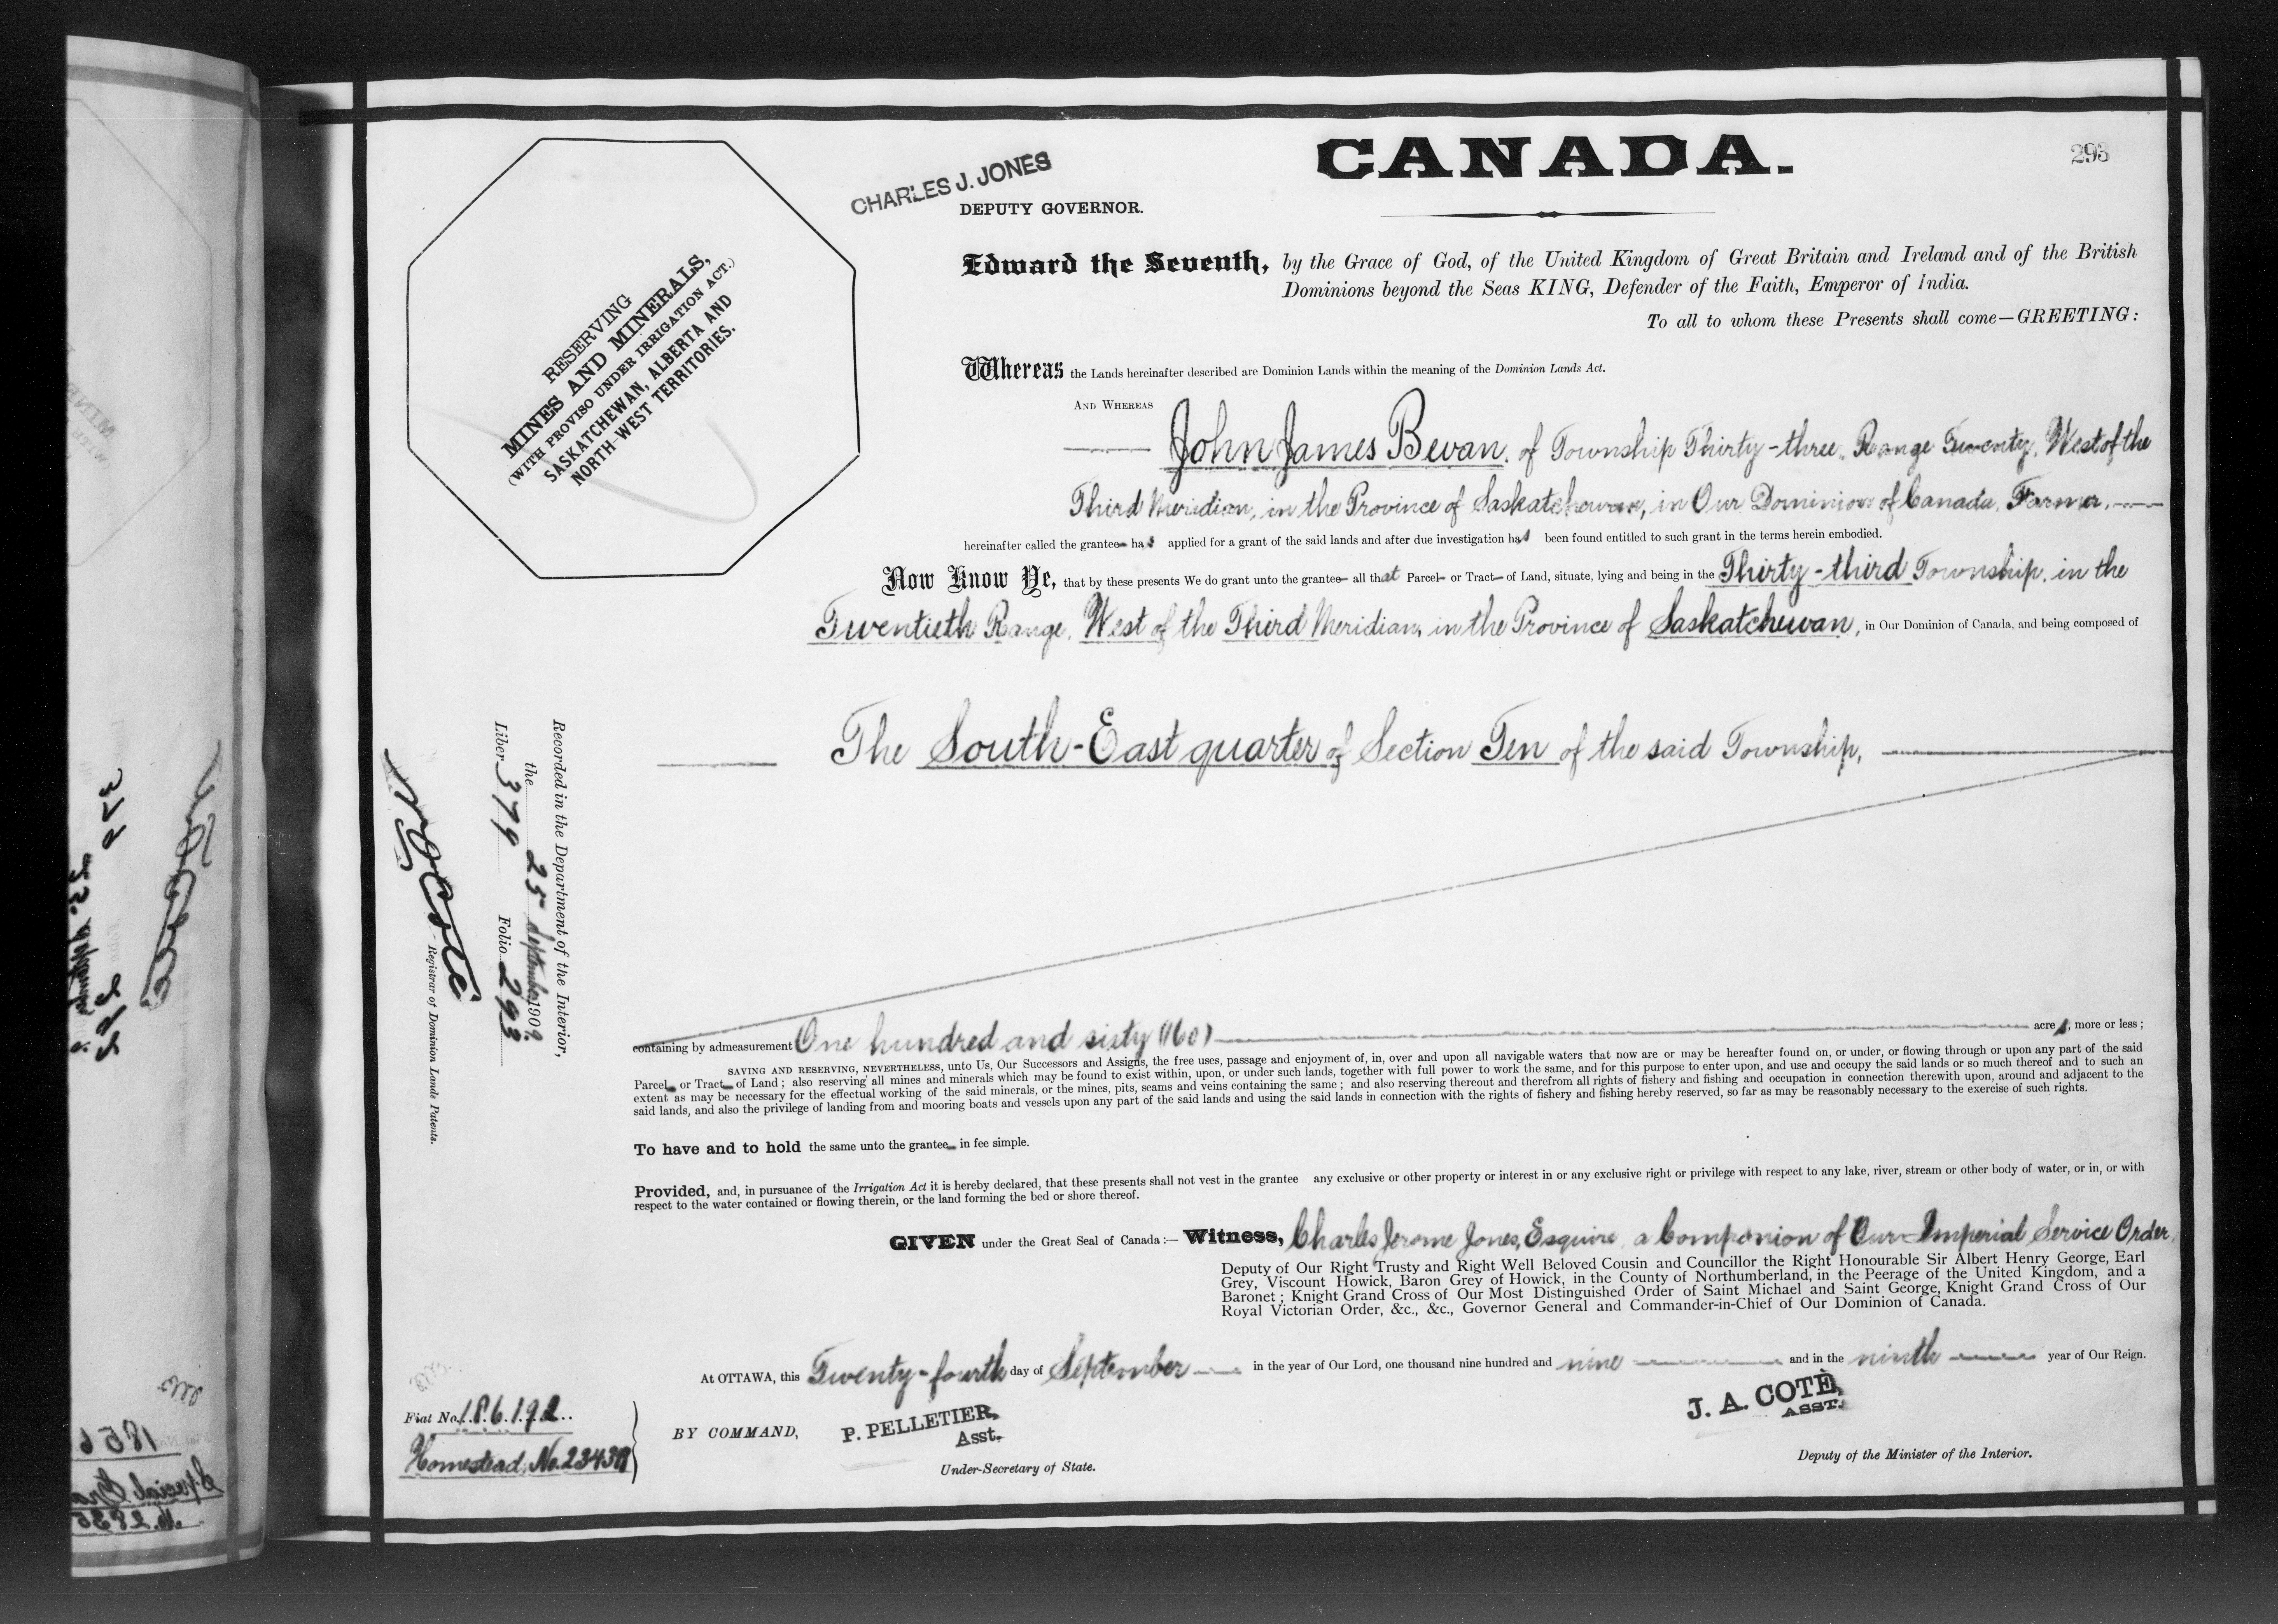 CANADA.
293
CHARLES J. JONES
DEPUTY GOVERNOR.
RESERVING
MINES AND MINERALS,
(WITH PROVISO UNDER IRRIGATION ACT.)
SASKATCHEWAN, ALBERTA AND
NORTH-WEST TERRITORIES.
Edward the Seventh, by the Grace of God, of the United Kingdom of Great Britain and Ireland and of the British
Dominions beyond the Seas KING, Defender of the Faith, Emperor of India.
To all to whom these Presents shall come—GREETING:
Whereas the Lands hereinafter described are Dominion Lands within the meaning of the Dominion Lands Act.
AND WHEREAS
John James Bevan, of Township Thirty-three, Range Twenty, West of the
Third Meridian, in the Province of Saskatchewan, in Our Dominion of Canada, Farmer,
hereinafter called the grantee has applied for a grant of the said lands and after due investigation has been found entitled to such grant in the terms herein embodied.
Now Know Ye, that by these presents We do grant unto the grantee all that Parcel or Tract of Land, situate, lying and being in the Thirty-third Township, in the
Twentieth Range, West of the Third Meridian, in the Province of Saskatchewan, in Our Dominion of Canada, and being composed of
The South-East quarter of Section Ten of the said Township,
containing by admeasurement One hundred and sixty (160) acres, more or less;
SAVING AND RESERVING, NEVERTHELESS, unto Us, Our Successors and Assigns, the free uses, passage and enjoyment of, in, over and upon all navigable waters that now are or may be hereafter found on, or under, or flowing through or upon any part of the said
Parcel or Tract of Land; also reserving all mines and minerals which may be found to exist within, upon, or under such lands, together with full power to work the same, and for this purpose to enter upon, and use and occupy the said lands or so much thereof and to such an
extent as may be necessary for the effectual working of the said minerals, or the mines, pits, seams and veins containing the same; and also reserving thereout and therefrom all rights of fishery and fishing and occupation in connection therewith upon, around and adjacent to the
said lands, and also the privilege of landing from and mooring boats and vessels upon any part of the said lands and using the said lands in connection with the rights of fishery and fishing hereby reserved, so far as may be reasonably necessary to the exercise of such rights.
To have and to hold the same unto the grantee in fee simple.
Provided, and, in pursuance of the Irrigation Act it is hereby declared, that these presents shall not vest in the grantee any exclusive or other property or interest in or any exclusive right or privilege with respect to any lake, river, stream or other body of water, or in, or with
respect to the water contained or flowing therein, or the land forming the bed or shore thereof.
GIVEN under the Great Seal of Canada:— Witness, Charles Jerome Jones, Esquire, a Companion of Our Imperial Service Order,
Deputy of Our Right Trusty and Right Well Beloved Cousin and Councillor the Right Honourable Sir Albert Henry George, Earl
Grey, Viscount Howick, Baron Grey of Howick, in the County of Northumberland, in the Peerage of the United Kingdom, and a
Baronet; Knight Grand Cross of Our Most Distinguished Order of Saint Michael and Saint George, Knight Grand Cross of Our
Royal Victorian Order, &c., &c., Governor General and Commander-in-Chief of Our Dominion of Canada.
At OTTAWA, this Twenty-fourth day of September in the year of Our Lord, one thousand nine hundred and nine and in the ninth year of Our Reign.
BY COMMAND,
P. PELLETIER,
Asst.
Under-Secretary of State.
J. A. COTÉ,
ASST.
Deputy of the Minister of the Interior.
Recorded in the Department of the Interior,
the 25 September 1909.
Liber 379 Folio 293
N O Coté
Registrar of Dominion Lands Patents.
Fiat No. 186192
Homestead, No.